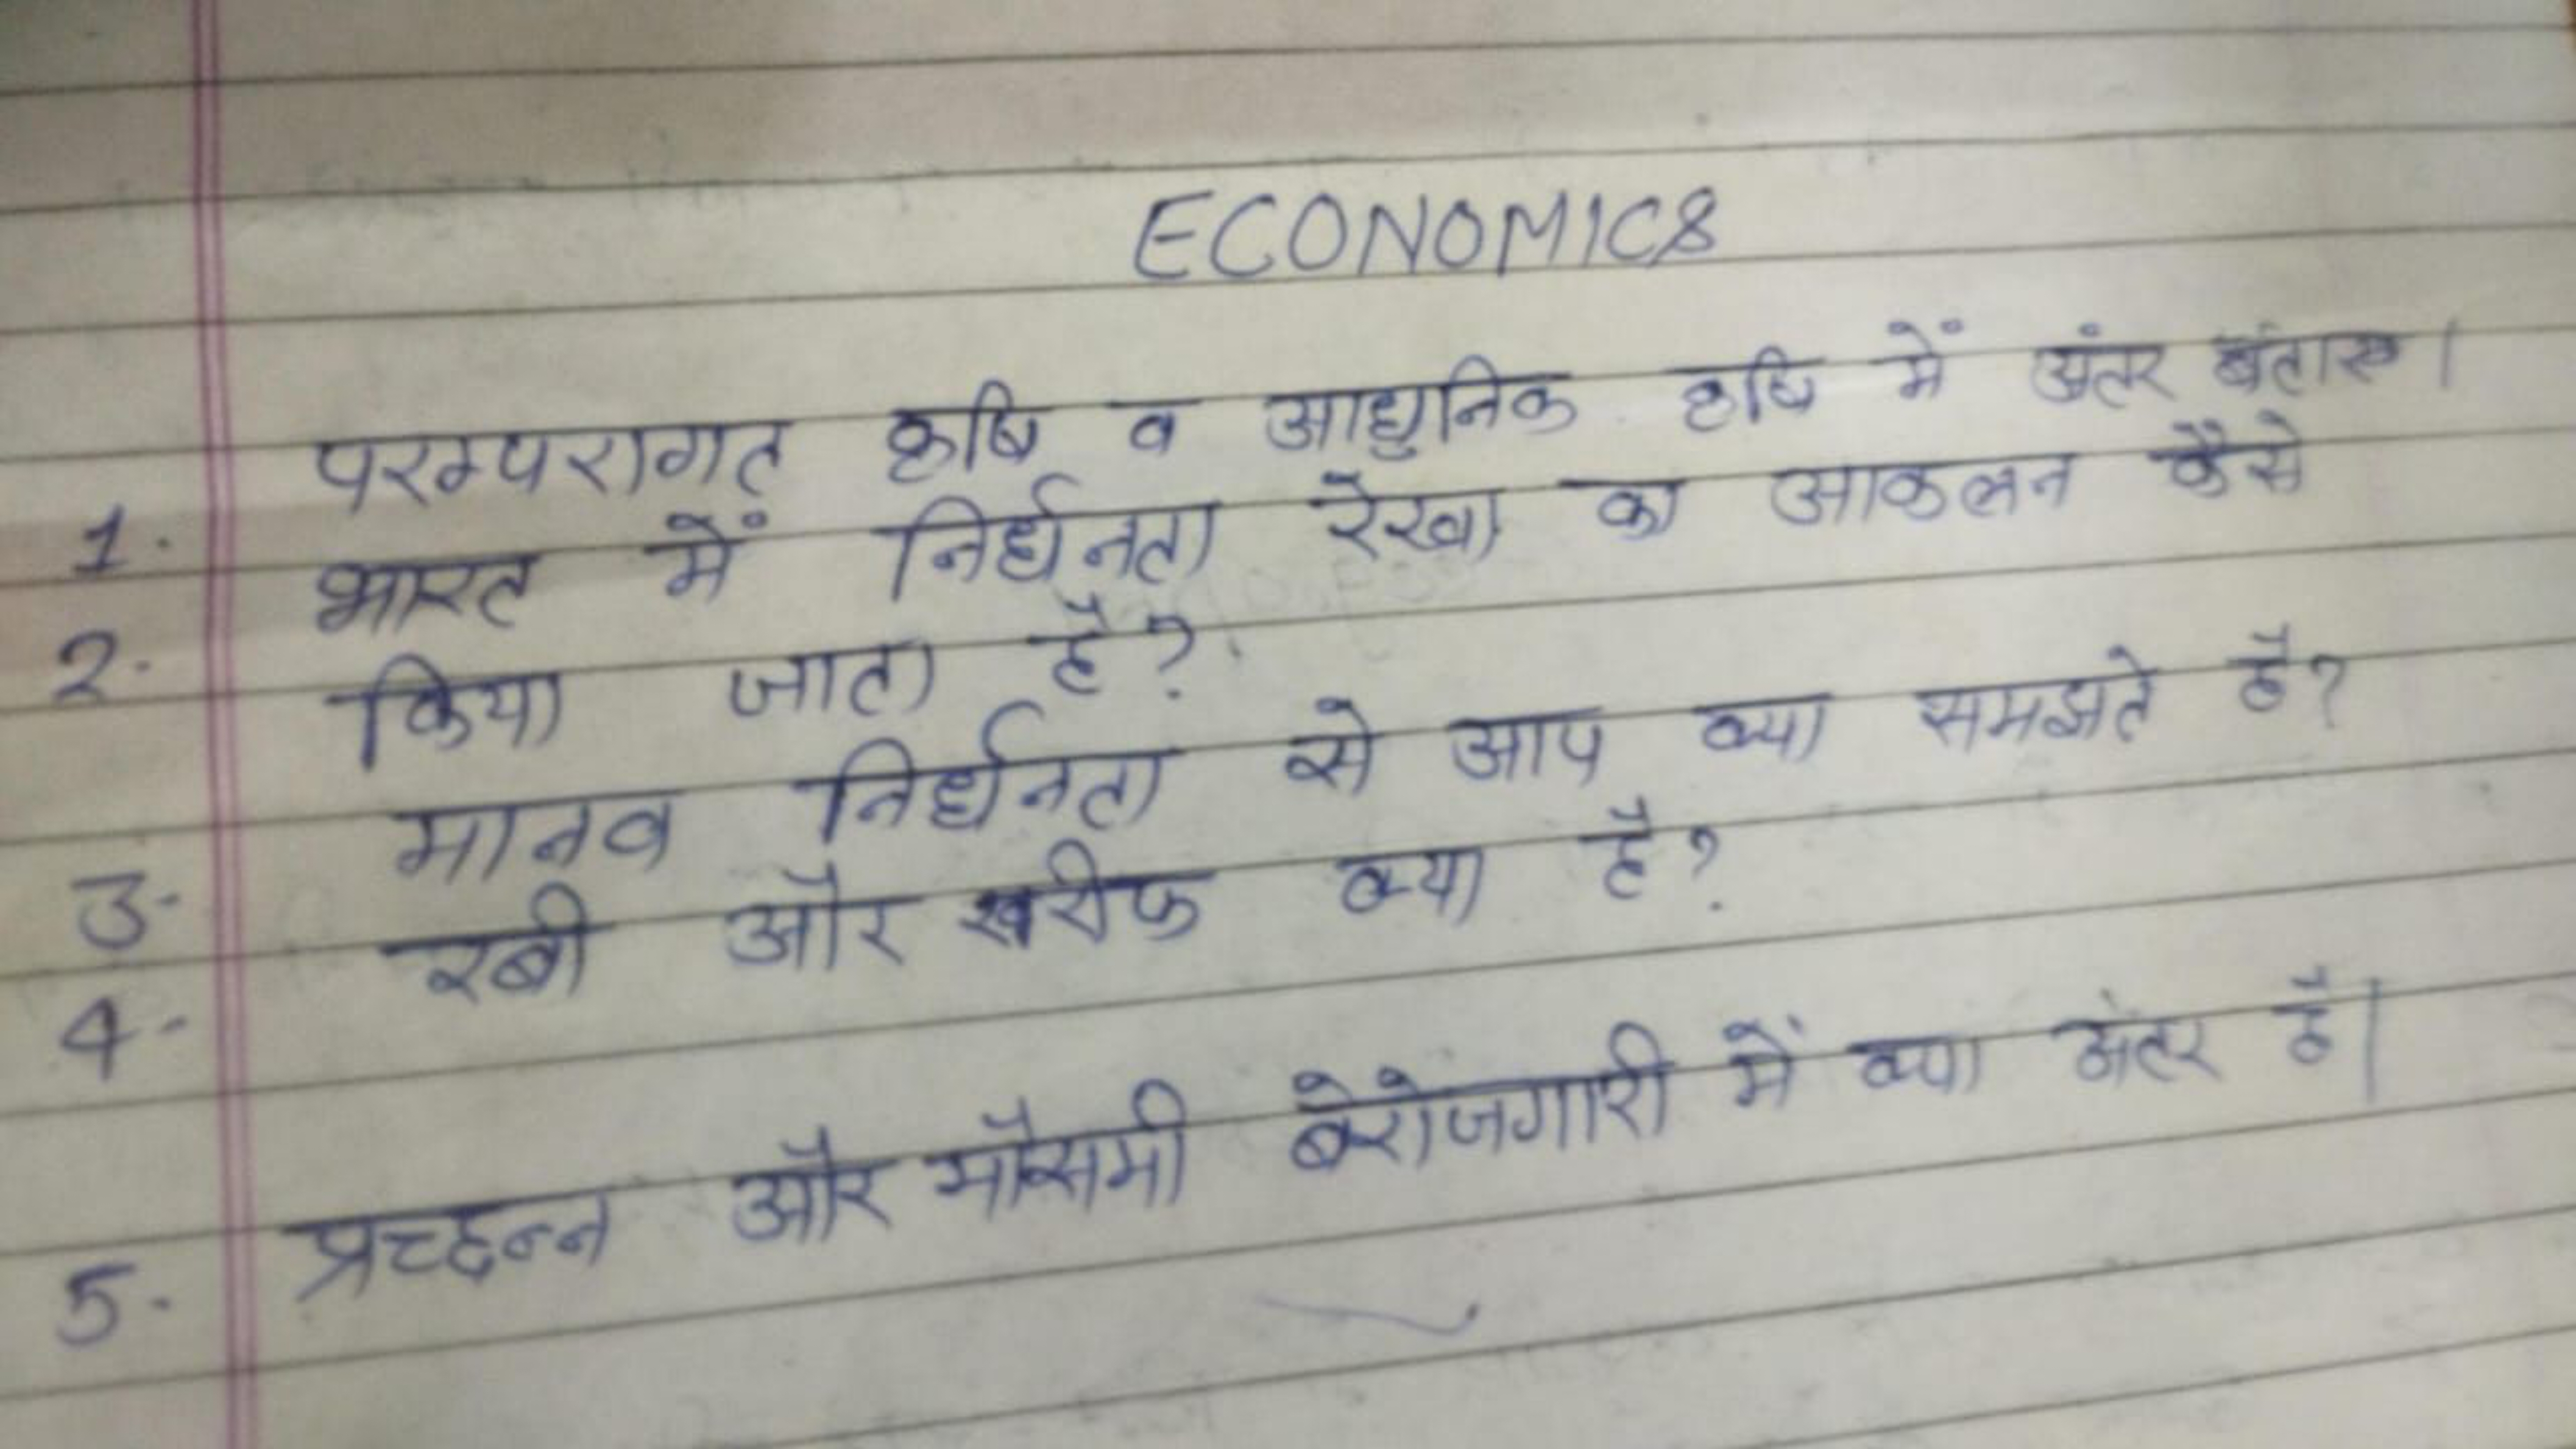 ECONOMICS
1. परम्परागत कृषि व आधुनिक कृषि में अंतर बताए।
2. भारत में निर्धनता रेखा का आकलन कैसे
किया जाता है?
3. मानव निर्धनता से आप क्या समझते है?
4. रबी और खरीफ क्या है?
5. प्रच्छन्न और मौसमी बेरोजगारी में क्या अंतर है।